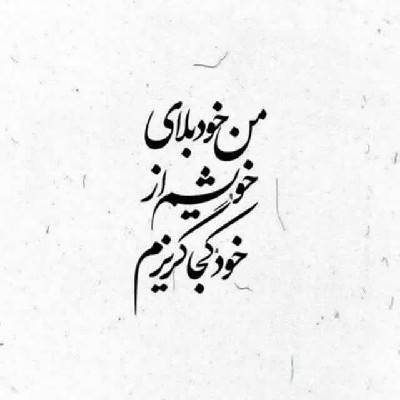 من خود بلای
خویشم از
خود کجا گریزم